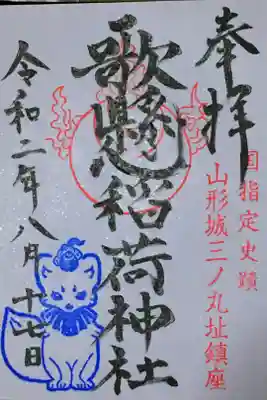 奉拝
国指定史蹟
山形城三ノ丸址鎮座
歌懸稲荷神社
令和二年八月十七日